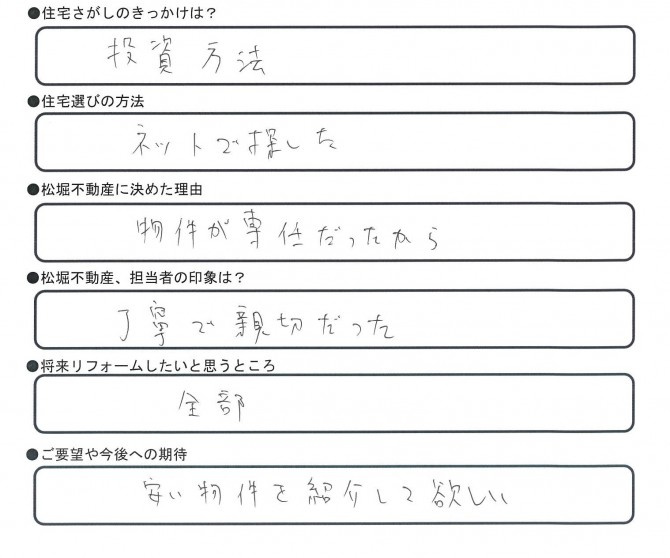 ●住宅さがしのきっかけは？
投資方法
●住宅選びの方法
ネットで探した
●松堀不動産に決めた理由
物件が専任だったから
●松堀不動産、担当者の印象は？
丁寧で親切だった
●将来リフォームしたいと思うところ
全部
●ご要望や今後への期待
安い物件を紹介して欲しい